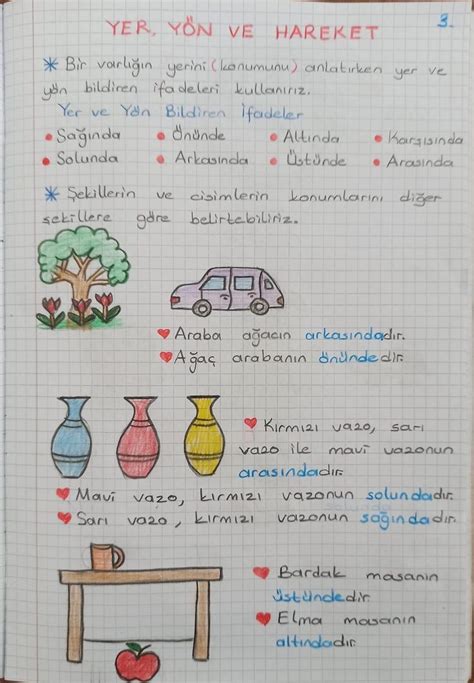 3.
YER, YÖN VE HAREKET
* Bir varlığın yerini (konumunu) anlatırken yer ve
yön bildiren ifadeleri kullanırız.
Yer ve Yön Bildiren İfadeler
• Sağında • Önünde • Altında • Karşısında
• Solunda • Arkasında • Üstünde • Arasında
* Şekillerin ve cisimlerin konumlarını diğer
şekillere göre belirtebiliriz.
♥ Araba ağacın arkasındadır.
♥ Ağaç arabanın önündedir.
♥ Kırmızı vazo, sarı
vazo ile mavi vazonun
arasındadır.
♥ Mavi vazo, kırmızı vazonun solundadır.
♥ Sarı vazo, kırmızı vazonun sağındadır.
♥ Bardak masanın
üstündedir.
♥ Elma masanın
altındadır.